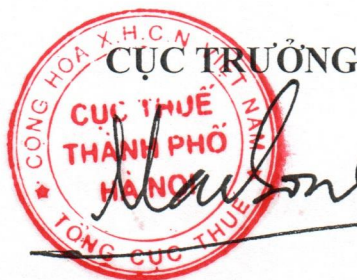 CỤC TRƯỞNG
CỘNG HÒA X.H.C.N VIỆT NAM
CỤC THUẾ
THÀNH PHỐ
HÀ NỘI
TỔNG CỤC THUẾ